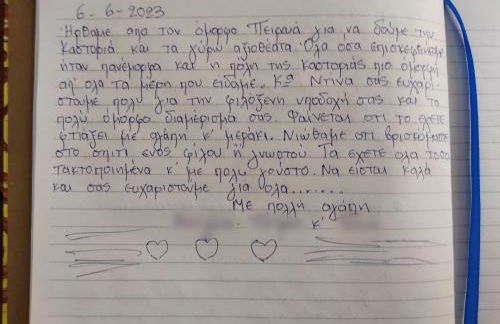 6-6-2023
Ήρθαμε απο τον όμορφο Πειραιά για να δούμε την
Καστοριά και τα γύρω αξιοθέατα. Όλα οσα επισκεφθήκαμε
ήταν πανέμορφα και η πόλη της Καστοριάς πιο όμορφη
απ' όλα τα μέρη που είδαμε. Κα Ντίνα σας ευχαρι-
στούμε πολύ για την φιλόξενη υποδοχή σας και το
πολύ όμορφο διαμέρισμά σας. Φαίνεται οτι το έχετε
φτιάξει με αγάπη κ' μεράκι. Νιώθαμε οτι βρισκόμαστε
στο σπίτι ενός φίλου ή γνωστού. Τα έχετε ολα τοσο
τακτοποιημένα κ' με πολύ γούστο. Να είσται καλά
και σας ευχαριστούμε για ολα........
Με πολλή αγάπη
κ'